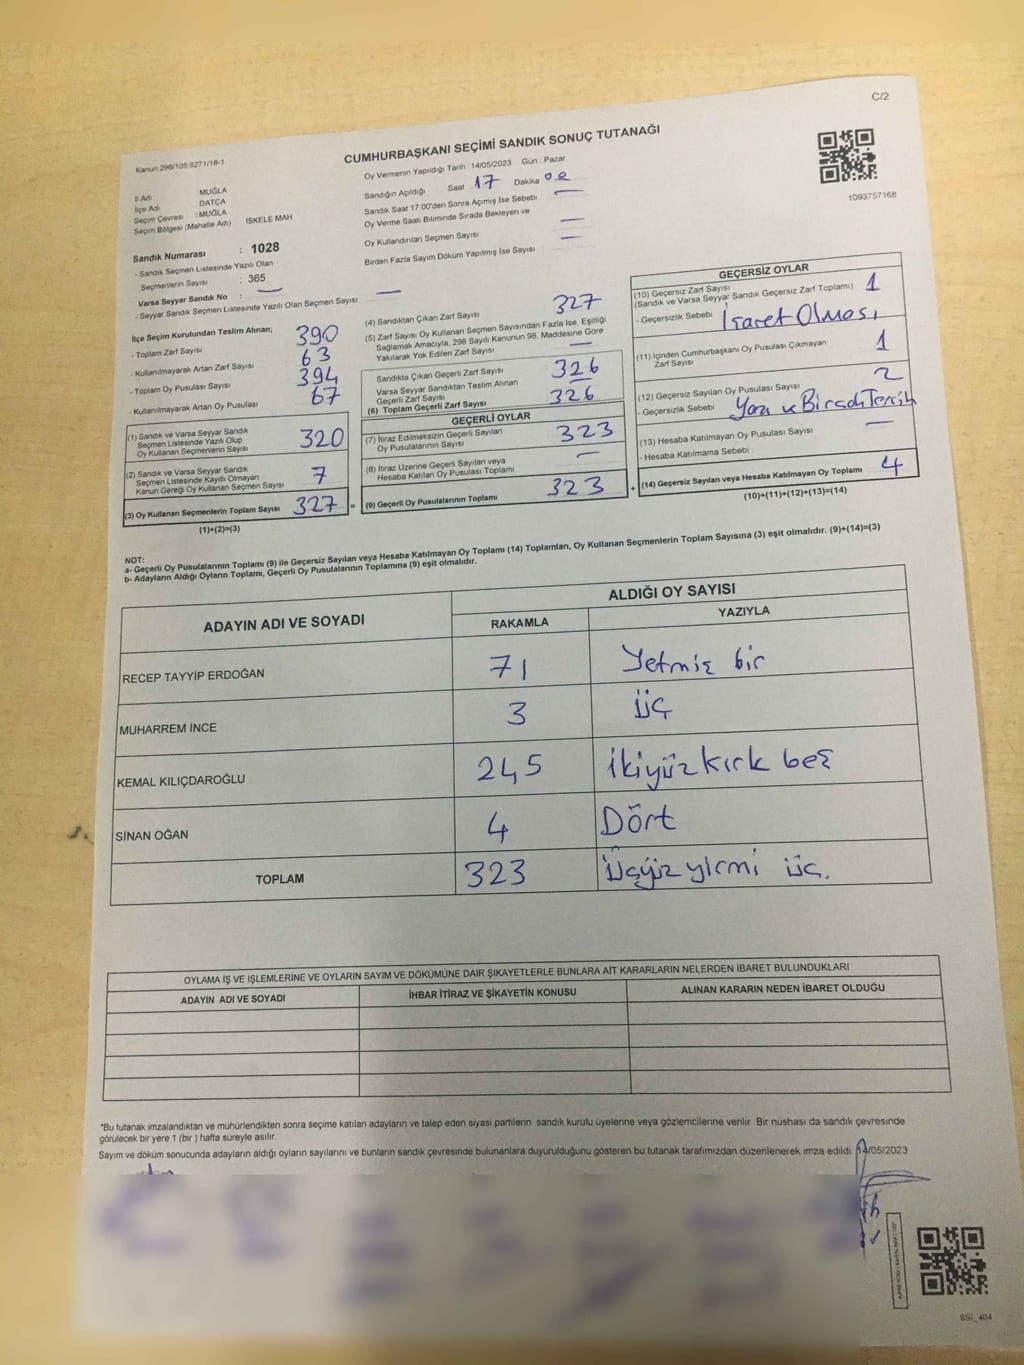 C/2
Kanun:298/105 6271/18-1
CUMHURBAŞKANI SEÇİMİ SANDIK SONUÇ TUTANAĞI
Oy Vermenin Yapıldığı Tarih :14/05/2023 Gün : Pazar
İl Adı MUĞLA
İlçe Adı DATÇA
Seçim Çevresi :MUĞLA
Seçim Bölgesi (Mahalle Adı) İSKELE MAH
Sandığın Açıldığı Saat 17 Dakika 00
Sandık Saat 17:00'den Sonra Açımış İse Sebebi —
Oy Verme Saati Bitiminde Sırada Bekleyen ve
Oy Kullandırılan Seçmen Sayısı —
Birden Fazla Sayım Döküm Yapılmış İse Sayısı —
1093757168
Sandık Numarası : 1028
- Sandık Seçmen Listesinde Yazılı Olan
Seçmenlerin Sayısı : 365
Varsa Seyyar Sandık No : —
- Seyyar Sandık Seçmen Listesinde Yazılı Olan Seçmen Sayısı —
İlçe Seçim Kurulundan Teslim Alınan;
- Toplam Zarf Sayısı 390
- Kullanılmayarak Artan Zarf Sayısı 63
- Toplam Oy Pusulası Sayısı 394
- Kullanılmayarak Artan Oy Pusulası 67
(1) Sandık ve Varsa Seyyar Sandık
Seçmen Listesinde Yazılı Olup
Oy Kullanan Seçmenlerin Sayısı 320
(2) Sandık ve Varsa Seyyar Sandık
Seçmen Listesinde Kayıtlı Olmayan
Kanun Gereği Oy Kullanan Seçmen Sayısı 7
(3) Oy Kullanan Seçmenlerin Toplam Sayısı 327 =
(1)+(2)=(3)
(4) Sandıktan Çıkan Zarf Sayısı 327
(5) Zarf Sayısı Oy Kullanan Seçmen Sayısından Fazla İse, Eşitliği
Sağlamak Amacıyla, 298 Sayılı Kanunun 98. Maddesine Göre
Yakılarak Yok Edilen Zarf Sayısı —
Sandıkta Çıkan Geçerli Zarf Sayısı 326
Varsa Seyyar Sandıktan Teslim Alınan
Geçerli Zarf Sayısı —
(6) Toplam Geçerli Zarf Sayısı 326
GEÇERLİ OYLAR
(7) İtiraz Edilmeksizin Geçerli Sayılan
Oy Pusulalarının Sayısı 323
(8) İtiraz Üzerine Geçerli Sayılan veya
Hesaba Katılan Oy Pusulası Toplamı —
(9) Geçerli Oy Pusulalarının Toplamı 323 +
GEÇERSİZ OYLAR
(10) Geçersiz Zarf Sayısı
(Sandık ve Varsa Seyyar Sandık Geçersiz Zarf Toplamı) 1
- Geçersizlik Sebebi İşaret Olması
(11) İçinden Cumhurbaşkanı Oy Pusulası Çıkmayan
Zarf Sayısı 1
(12) Geçersiz Sayılan Oy Pusulası Sayısı 2
- Geçersizlik Sebebi
(13) Hesaba Katılmayan Oy Pusulası Sayısı —
- Hesaba Katılmama Sebebi :
(14) Geçersiz Sayılan veya Hesaba Katılmayan Oy Toplamı 4
(10)+(11)+(12)+(13)=(14)
NOT:
a- Geçerli Oy Pusulalarının Toplamı (9) ile Geçersiz Sayılan veya Hesaba Katılmayan Oy Toplamı (14) Toplamları, Oy Kullanan Seçmenlerin Toplam Sayısına (3) eşit olmalıdır. (9)+(14)=(3)
b- Adayların Aldığı Oyların Toplamı, Geçerli Oy Pusulalarının Toplamına (9) eşit olmalıdır.
ADAYIN ADI VE SOYADI
ALDIĞI OY SAYISI
RAKAMLA YAZIYLA
RECEP TAYYİP ERDOĞAN 71 Yetmiş bir
MUHARREM İNCE 3 üç
KEMAL KILIÇDAROĞLU 245 ikiyüzkırk beş
SİNAN OĞAN 4 Dört
TOPLAM 323 Üçyüz yirmi üç.
OYLAMA İŞ VE İŞLEMLERİNE VE OYLARIN SAYIM VE DÖKÜMÜNE DAİR ŞİKAYETLERLE BUNLARA AİT KARARLARIN NELERDEN İBARET BULUNDUKLARI
ADAYIN ADI VE SOYADI İHBAR İTİRAZ VE ŞİKAYETİN KONUSU ALINAN KARARIN NEDEN İBARET OLDUĞU
*Bu tutanak imzalandıktan ve mühürlendikten sonra seçime katılan adayların ve talep eden siyasi partilerin sandık kurulu üyelerine veya gözlemcilerine verilir. Bir nüshası da sandık çevresinde
görülecek bir yere 1 (bir ) hafta süreyle asılır.
Sayım ve döküm sonucunda adayların aldığı oyların sayılarını ve bunların sandık çevresinde bulunanlara duyurulduğunu gösteren bu tutanak tarafımızdan düzenlenerek imza edildi. 14/05/2023
SSİ_404